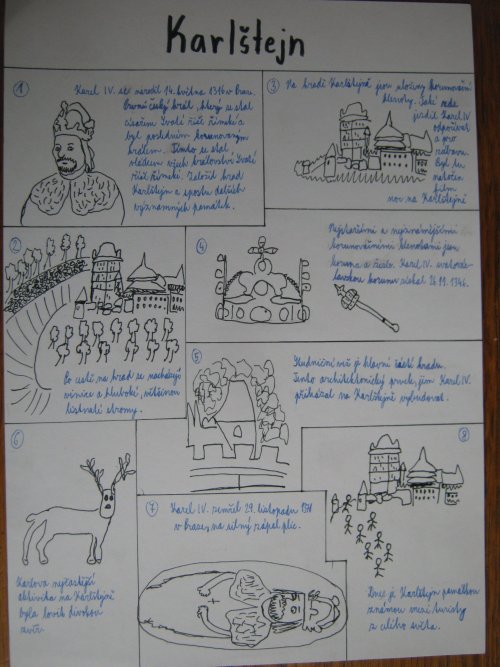 Karlštejn
1
Karel IV. se narodil 14. května 1316 v Praze.
První český král, který se stal
císařem Svaté říše římské a
byl posledním korunovaným
králem. Tímto se stal
vládcem všech království Svaté
říše římské. Založil hrad
Karlštejn a spoustu dalších
významných památek.
2
Po cestě na hrad se nacházejí
vinice a hluboké, většinou
listnaté stromy.
3
Na hradě Karlštejně jsou uloženy korunovační
klenoty. Také sem
jezdil Karel IV.
odpočívat
a pro
zábavu.
Byl tu
natočen
film
noc na Karlštejně
4
Nejstaršími a nejznámějšími
korunovačními klenotami jsou
koruna a žezlo. Karel IV. svatová-
clavskou korunu získal 26.11.1346.
5
Studniční věž je hlavní částí hradu.
Tento architektonický prvek, jim Karel IV.
přikázal na Karlštejně vybudovat.
6
Karlova nejčastější
aktivita na Karlštejně
byla lovit divokou
zvěř.
7
Karel IV. zemřel 29. listopadu
v Praze, na silný zápal plic.
8
Dnes je Karlštejn památkou
známou mezi turisty
z celého světa.